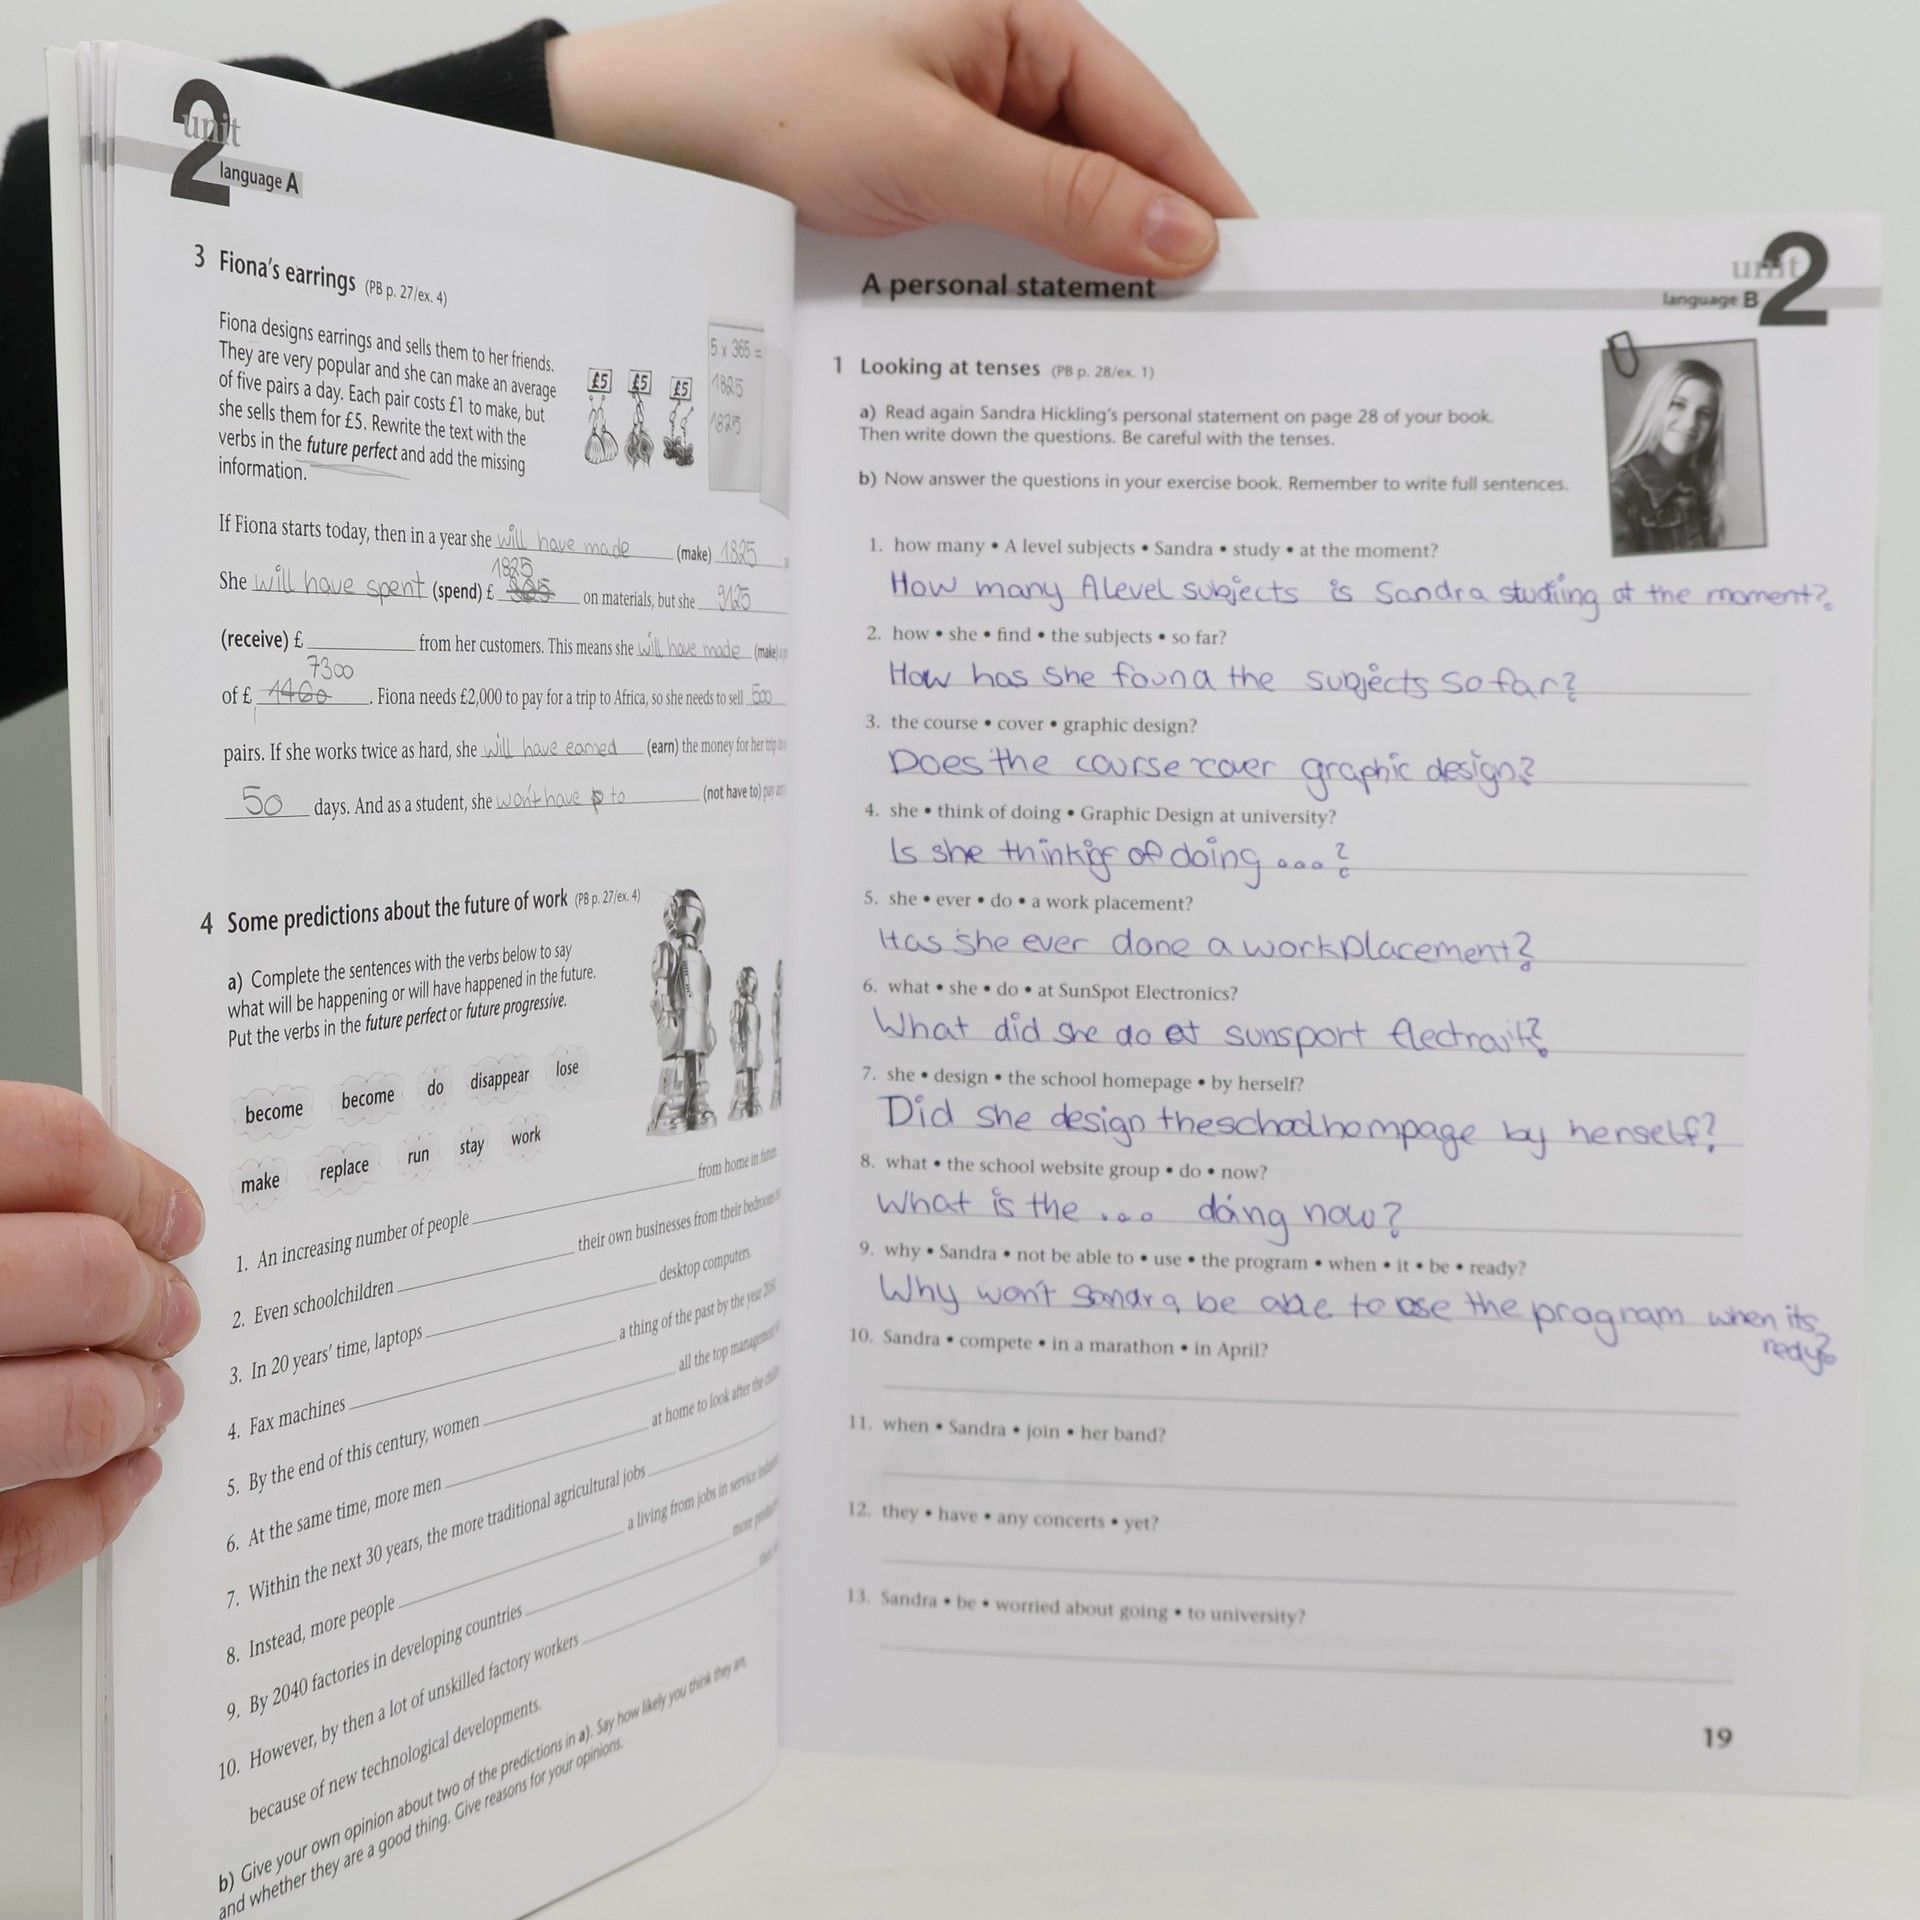 2
unit
language A
3 Fiona's earrings (PB p. 27/ex. 4)
Fiona designs earrings and sells them to her friends.
They are very popular and she can make an average
of five pairs a day. Each pair costs £1 to make, but
she sells them for £5. Rewrite the text with the
verbs in the future perfect and add the missing
information.
£5 £5 £5
5 x 365 =
1825
1825
If Fiona starts today, then in a year she will have made (make) 1825
1825
She will have spent (spend) £ 365 on materials, but she 9125
(receive) £ from her customers. This means she will have made (make)
7300
of £ 1460. Fiona needs £2,000 to pay for a trip to Africa, so she needs to sell 500
pairs. If she works twice as hard, she will have earned (earn) the money for her trip in
50 days. And as a student, she won't have to (not have to) pay
4 Some predictions about the future of work (PB p. 27/ex. 4)
a) Complete the sentences with the verbs below to say
what will be happening or will have happened in the future.
Put the verbs in the future perfect or future progressive.
become become do disappear lose
make replace run stay work
1. An increasing number of people from home in future
2. Even schoolchildren their own businesses from their bedrooms
3. In 20 years' time, laptops desktop computers.
4. Fax machines a thing of the past by the year
5. By the end of this century, women all the top management
6. At the same time, more men at home to look after the
7. Within the next 30 years, the more traditional agricultural jobs
8. Instead, more people a living from jobs in service
9. By 2040 factories in developing countries more
10. However, by then a lot of unskilled factory workers
because of new technological developments.
b) Give your own opinion about two of the predictions in a). Say how likely you think they are,
and whether they are a good thing. Give reasons for your opinions.
A personal statement
unit
language B 2
1 Looking at tenses (PB p. 28/ex. 1)
a) Read again Sandra Hickling's personal statement on page 28 of your book.
Then write down the questions. Be careful with the tenses.
b) Now answer the questions in your exercise book. Remember to write full sentences.
1. how many • A level subjects • Sandra • study • at the moment?
How many A level subjects is Sandra studiing at the moment?
2. how • she • find • the subjects • so far?
How has she found the subjects so far?
3. the course • cover • graphic design?
Does the course cover graphic design?
4. she • think of doing • Graphic Design at university?
Is she thinking of doing ...?
5. she • ever • do • a work placement?
Has she ever done a workplacement?
6. what • she • do • at SunSpot Electronics?
What did she do at sunsport
7. she • design • the school homepage • by herself?
Did she design the school hompage by herself?
8. what • the school website group • do • now?
What is the ... doing now?
9. why • Sandra • not be able to • use • the program • when • it • be • ready?
Why won't Sandra be able to use the program when its
redy?
10. Sandra • compete • in a marathon • in April?
11. when • Sandra • join • her band?
12. they • have • any concerts • yet?
13. Sandra • be • worried about going • to university?
19